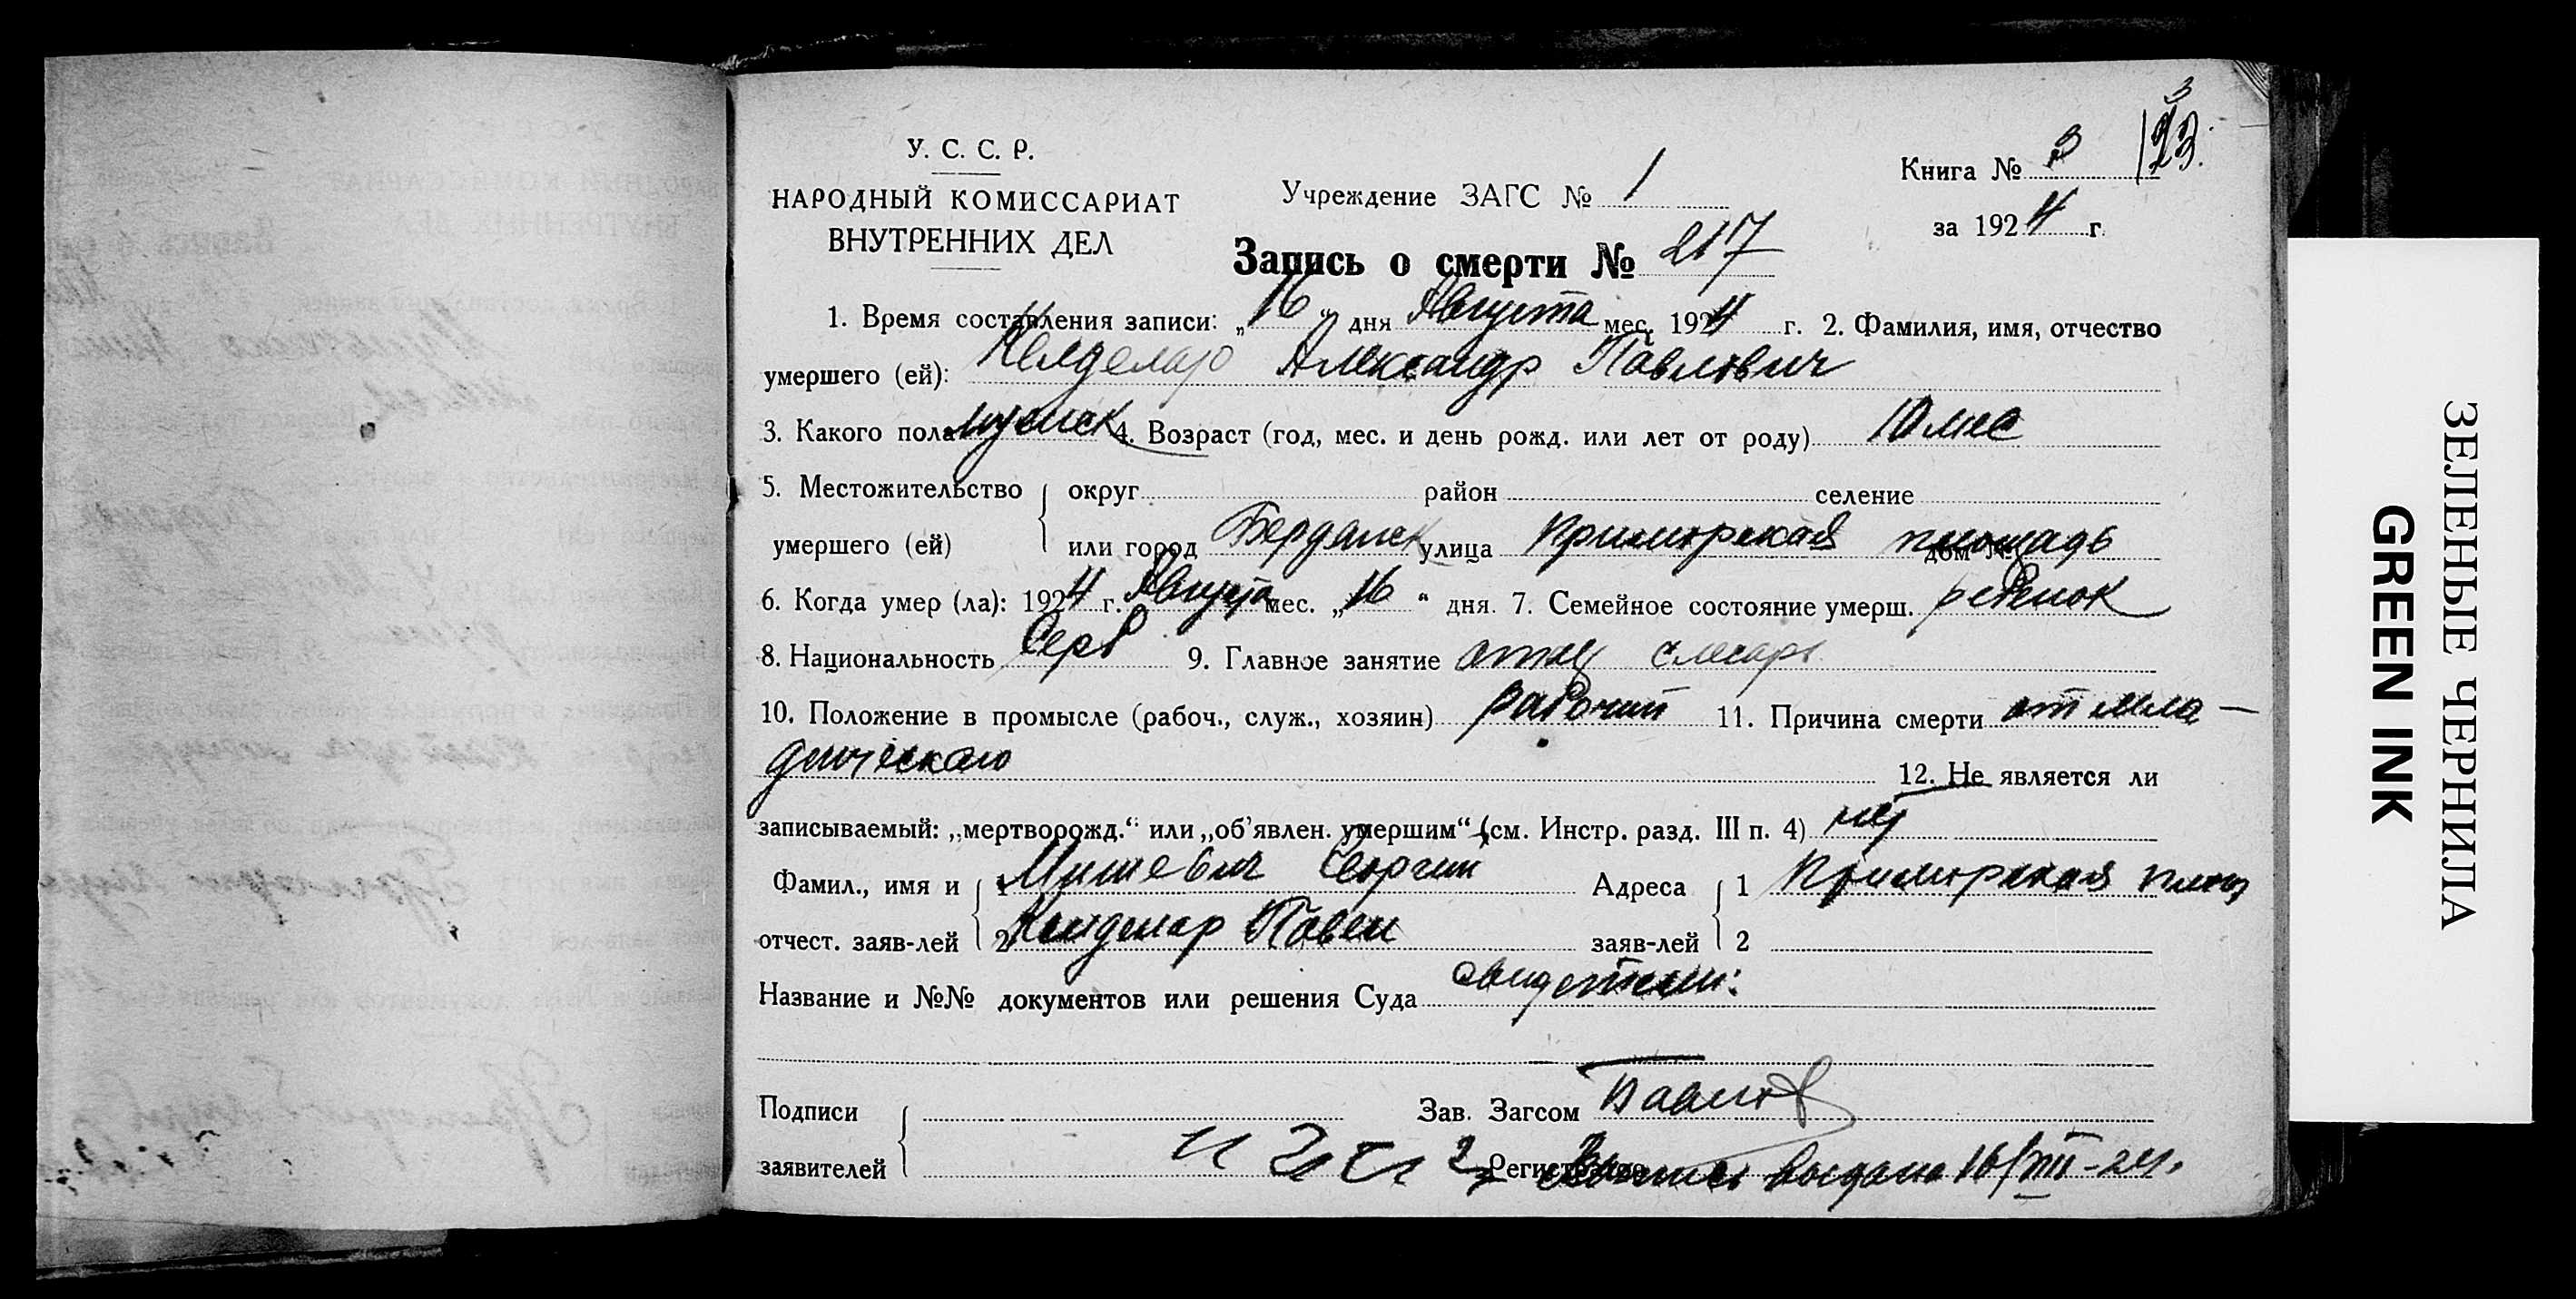 3
123.
У. С. С. Р.
НАРОДНЫЙ КОМИССАРИАТ
ВНУТРЕННИХ ДЕЛ
Учреждение ЗАГС № 1
Книга № 3
за 1924 г.
Запись о смерти № 217
1. Время составления записи: „16“ дня Августа мес. 1924 г. 2. Фамилия, имя, отчество
умершего (ей): Келделар Александр Павлович
3. Какого пола мужск 4. Возраст (год, мес. и день рожд. или лет от роду) 10 мес
5. Местожительство округ район селение
умершего (ей) или город Бердянск улица Приморская площадь дом №
6. Когда умер (ла): 1924 г. Августа мес. „16“ дня. 7. Семейное состояние умерш. ребенок
8. Национальность Серб 9. Главное занятие отец слесарь
10. Положение в промысле (рабоч., служ., хозяин) рабочий 11. Причина смерти от мла-
денческаго
12. Не является ли
записываемый: „мертворожд.“ или „об’явлен. умершим“ (см. Инстр. разд. III п. 4) нет
Фамил., имя и 1 Мишевич Георгий Адреса 1 Приморская площ
отчест. заяв-лей 2 Келделар Павел заяв-лей 2
Название и №№ документов или решения Суда свидетели:
Подписи Зав. Загсом Павлов
заявителей Регистратор выдана 16/VIII-24.
ЗЕЛЕНЫЕ ЧЕРНИЛА
GREEN INK